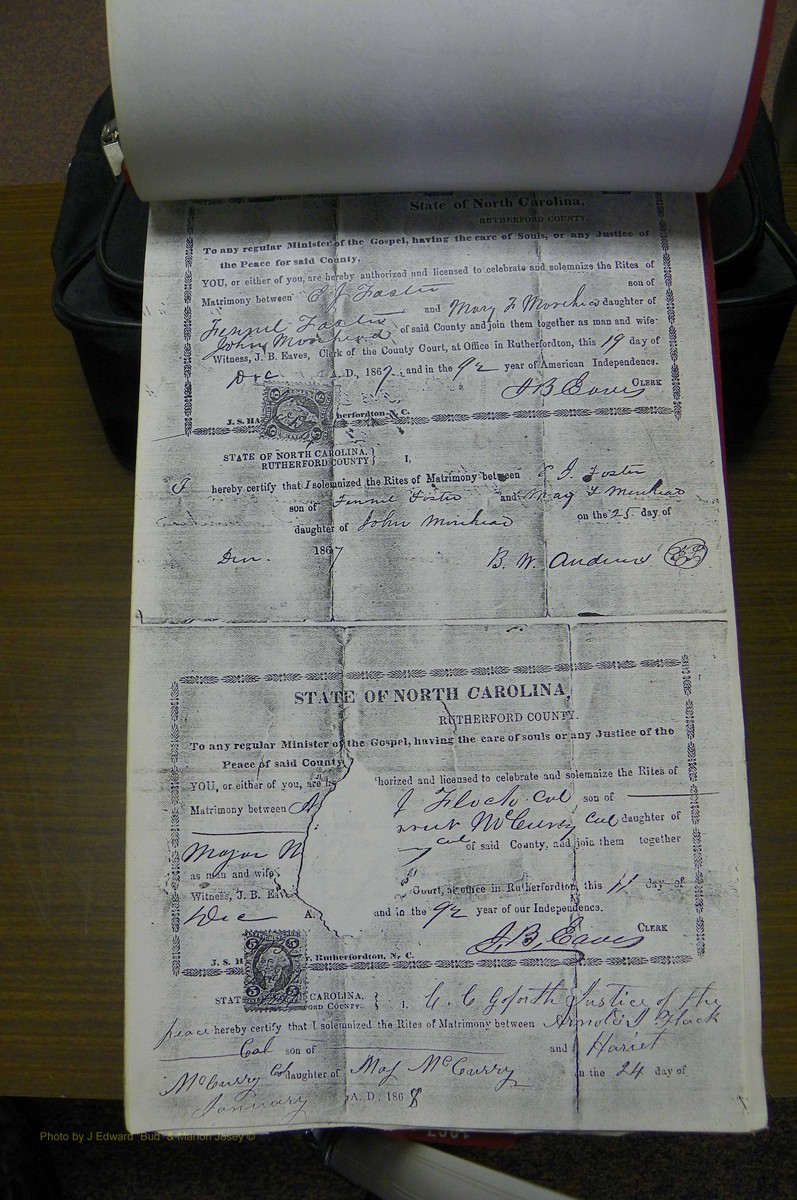 State of North Carolina,
RUTHERFORD COUNTY.
To any regular Minister of the Gospel, having the care of Souls, or any Justice of
the Peace for said County.
YOU, or either of you, are hereby authorized and licensed to celebrate and solemnize the Rites of
Matrimony between E J Foster son of
Fennel Foster and Mary F Morehead daughter of
John Morehead of said County and join them together as man and wife
Witness, J. B. Eaves, Clerk of the County Court, at Office in Rutherfordton, this 19 day of
Dec A. D., 1867, and in the 92 year of American Independence.
J B Eaves CLERK
J. S. HA herfordton N. C.
STATE OF NORTH CAROLINA, }
RUTHERFORD COUNTY } I,
I hereby certify that I solemnized the Rites of Matrimony between E J. Foster
son of Fennel Foster and Mary F Morehead
daughter of John Morehead on the 25. day of
1867 B. W. Andrews
STATE OF NORTH CAROLINA,
RUTHERFORD COUNTY.
To any regular Minister of the Gospel, having the care of souls or any Justice of the
Peace of said County
YOU, or either of you, are he thorized and licensed to celebrate and solemnize the Rites of
Matrimony between A J Flack Col son of
McCurry Col daughter of
Major M Col of said County, and join them together
as man and wife
Witness, J. B. Eave Court, at office in Rutherfordton, this 11 day of
Dec A. and in the 92 year of our Independence.
J. B. Eaves CLERK
J. S. H r, Rutherfordton, N. C.
STAT CAROLINA, }
ORD COUNTY. } I, C. C Goforth Justice of the
peace hereby certify that I solemnized the Rites of Matrimony between Arnold J Flack
Col son of and Hariet
McCurry Col daughter of Maj McCurry on the 24 day of
January A. D., 1868
Photo by J Edward "Bud" & Marion Josey ©